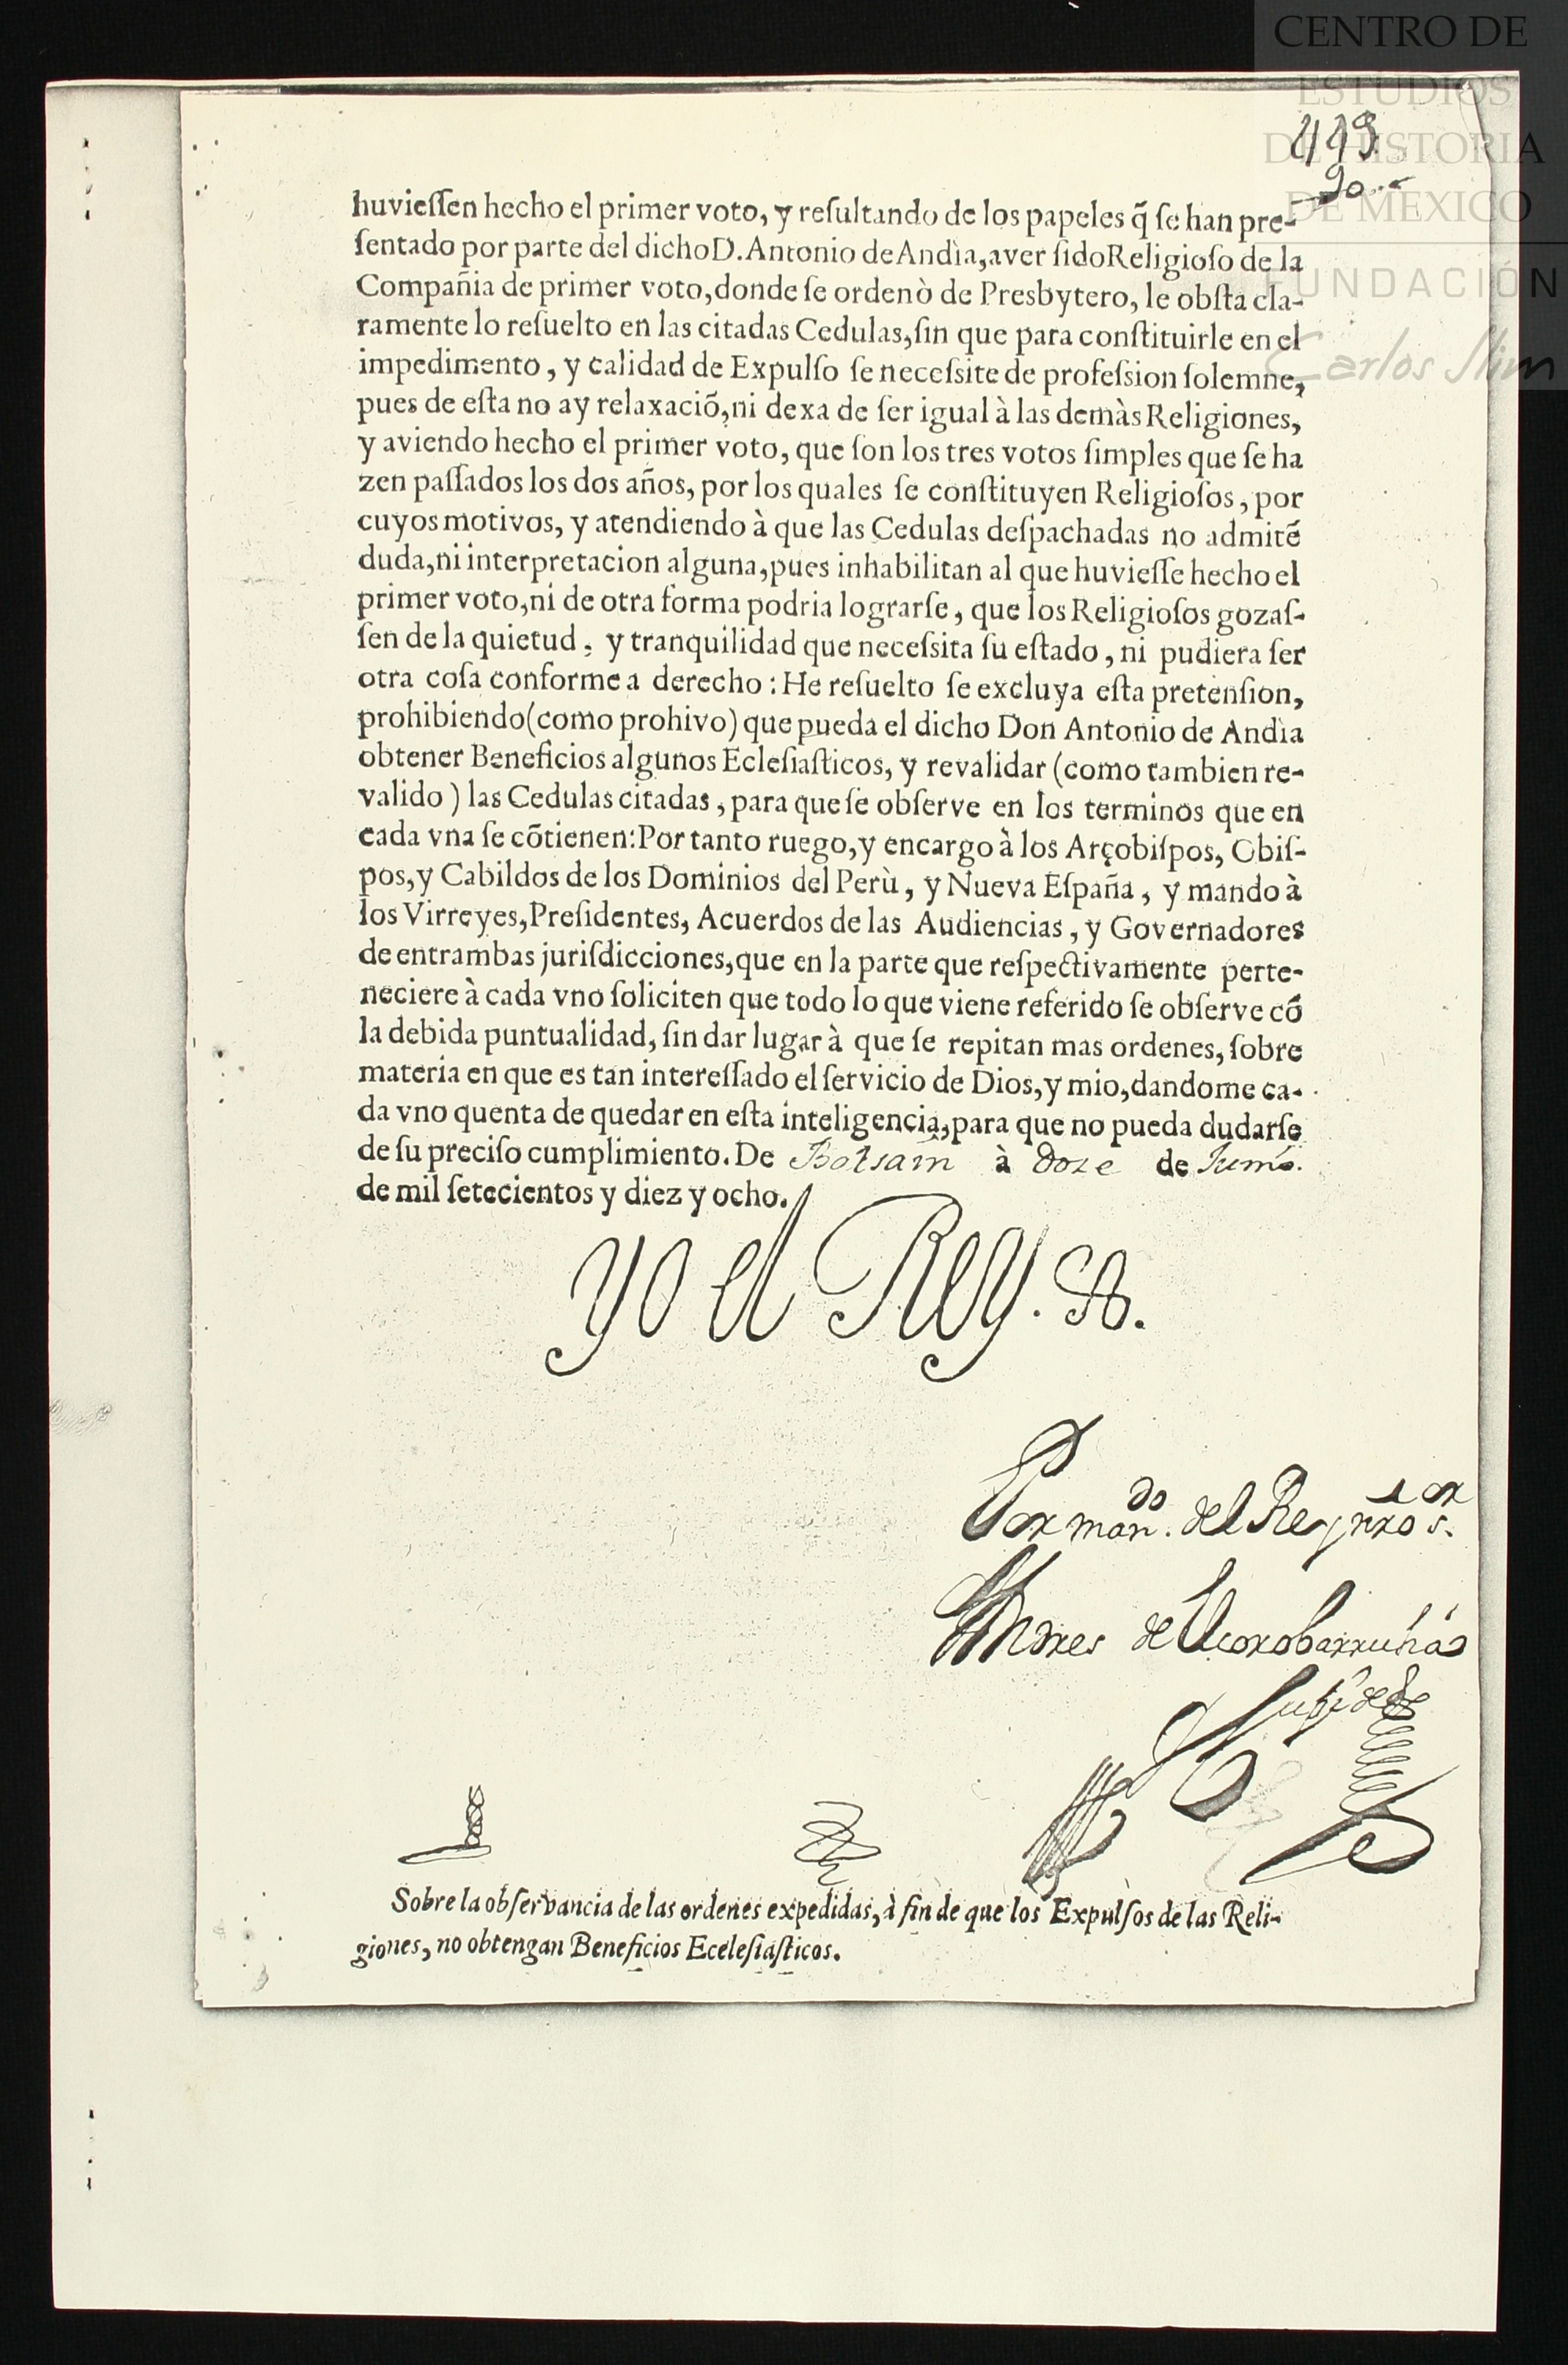 CENTRO DE
ESTUDIOS
DE HISTORIA
DE MEXICO
FUNDACIÓN
Carlos Slim
90
huvieſſen hecho el primer voto, y reſultando de los papeles q̃ ſe han pre-
ſentado por parte del dicho D. Antonio de Andìa, aver ſido Religioſo de la
Compañia de primer voto, donde ſe ordenò de Presbytero, le obſta cla-
ramente lo reſuelto en las citadas Cedulas, ſin que para conſtituirle en el
impedimento, y calidad de Expulſo ſe neceſsite de profeſsion ſolemne,
pues de eſta no ay relaxaciõ, ni dexa de ſer igual à las demàs Religiones,
y aviendo hecho el primer voto, que ſon los tres votos ſimples que ſe ha
zen paſſados los dos años, por los quales ſe conſtituyen Religioſos, por
cuyos motivos, y atendiendo à que las Cedulas deſpachadas no admitẽ
duda, ni interpretacion alguna, pues inhabilitan al que huvieſſe hecho el
primer voto, ni de otra forma podria lograrſe, que los Religioſos gozaſ-
ſen de la quietud, y tranquilidad que neceſsita ſu eſtado, ni pudiera ſer
otra coſa conforme a derecho: He reſuelto ſe excluya eſta pretenſion,
prohibiendo (como prohivo) que pueda el dicho Don Antonio de Andìa
obtener Beneficios algunos Ecleſiaſticos, y revalidar (como tambien re-
valido) las Cedulas citadas, para que ſe obſerve en los terminos que en
cada vna ſe cõtienen: Por tanto ruego, y encargo à los Arçobiſpos, Obiſ-
pos, y Cabildos de los Dominios del Perù, y Nueva Eſpaña, y mando à
los Virreyes, Preſidentes, Acuerdos de las Audiencias, y Governadores
de entrambas juriſdicciones, que en la parte que reſpectivamente perte-
neciere à cada vno ſoliciten que todo lo que viene referido ſe obſerve cõ
la debida puntualidad, ſin dar lugar à que ſe repitan mas ordenes, ſobre
materia en que es tan intereſſado el ſervicio de Dios, y mio, dandome ca-
da vno quenta de quedar en eſta inteligencia, para que no pueda dudarſe
de ſu preciſo cumplimiento. De Balsaín à doze de Junio.
de mil ſetecientos y diez y ocho.
Yo el Rey.
Por man.do del Rey nro s.or
Andres de Elcorobarrutia
Sobre la obſervancia de las ordenes expedidas, à fin de que los Expulſos de las Reli-
giones, no obtengan Beneficios Eceleſiaſticos.